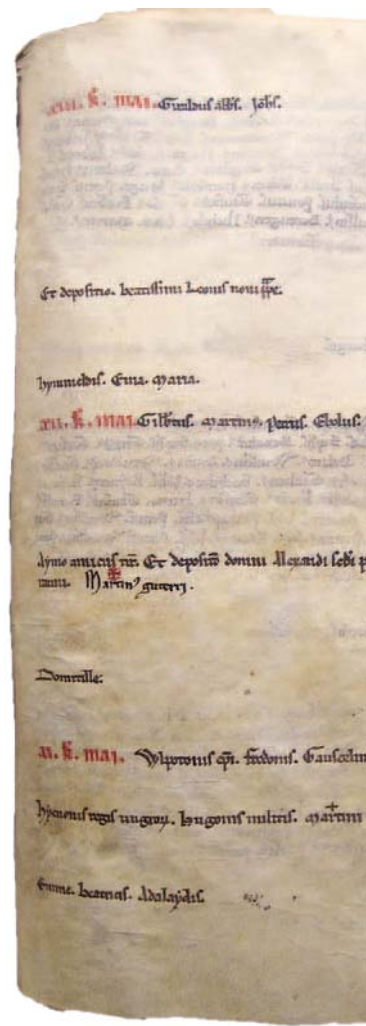 xiii. k. mai. abbs. Johs.
Et depositio. beatissimi Leonis noni ppe.
Ema. Maria.
xii. k. mai. Gilbtus. Martinus. Petrus. Ebolus.
Aymo amicus nr. Et deposito domini Alexandi
Martin⁹ guterri.
Domicille:
xi. k. mai. Wlpotonis epi. fredonis. Gauscelin
regis ungroꝝ. hugonis militis. Martini
Emme. beatricis. Adalaydis.